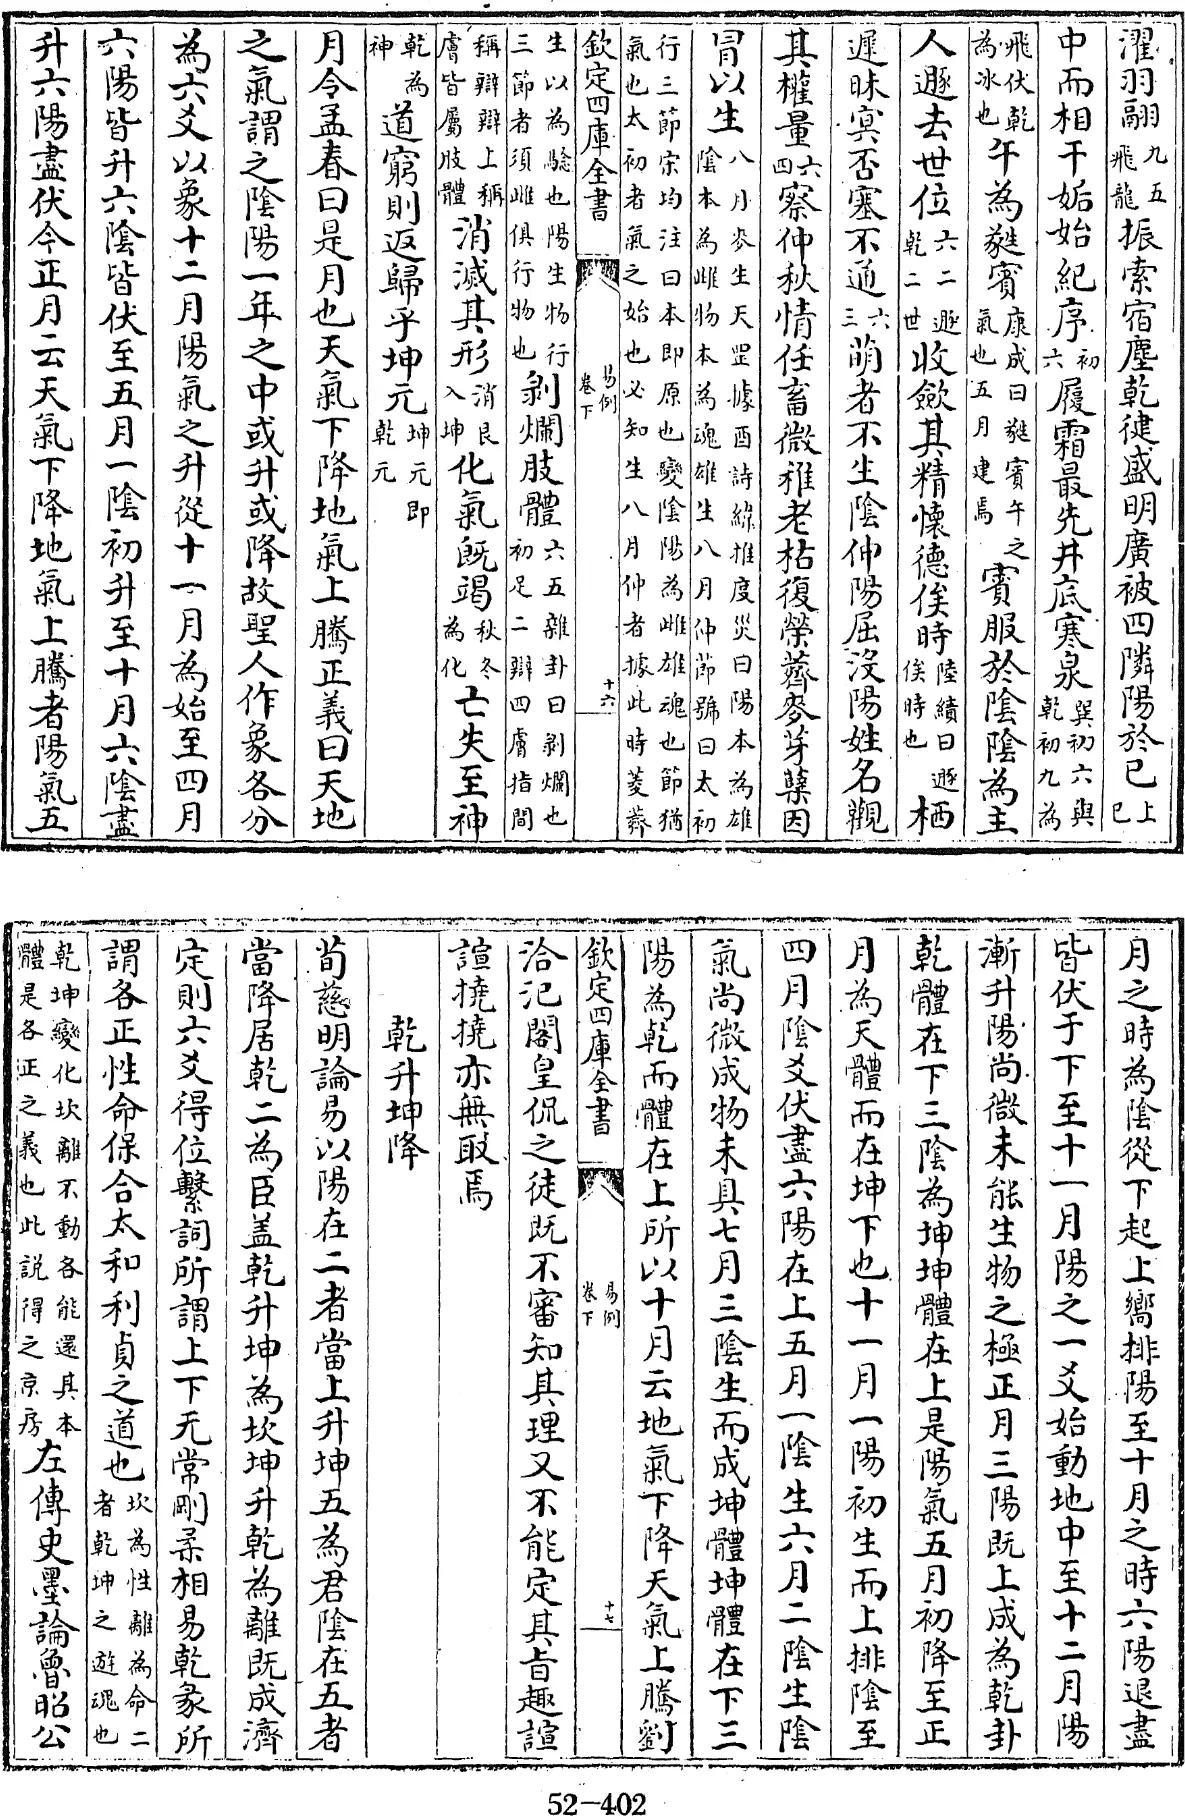 濯羽翮九五飛龍振索宿塵乾健盛明廣被四隣陽於巳上巳
中而相干姤始紀序初六履霜最先井底寒泉巽初六與乾初九為
飛伏乾為冰也午為蕤賓康成曰蕤賓午之氣也五月建焉賓服於陰陰為主
人遯去世位六二遯乾二世收斂其精懷德俟時陸績曰遯俟時也栖
遲昧冥否塞不通六三萌者不生陰伸陽屈沒陽姓名觀
其權量六四察仲秋情任畜微稚老枯復榮薺麥芽蘖因
冒以生八月麥生天罡據酉詩緯推度災曰陽本為雄陰本為雌物本為魂雄生八月仲節號曰太初
行三節宋均注曰本即原也變陰陽為雌雄魂也節猶氣也太初者氣之始也必知生八月仲者據此時薺麥
欽定四庫全書 易例 卷下 十六
生以為驗也陽生物行三節者須雌俱行物也剝爛肢體六五雜卦曰剝爛也初足二辨四膚指間
稱辯辯上稱膚皆屬肢體消滅其形消艮入坤化氣既竭秋冬為化亡失至神
乾為神道窮則返歸乎坤元坤元即乾元
月令孟春曰是月也天氣下降地氣上騰正義曰天地
之氣謂之陰陽一年之中或升或降故聖人作象各分
為六爻以象十二月陽氣之升從十一月為始至四月
六陽皆升六陰皆伏至五月一陰初升至十月六陰盡
升六陽盡伏今正月云天氣下降地氣上騰者陽氣五
月之時為陰從下起上嚮排陽至十月之時六陽退盡
皆伏于下至十一月陽之一爻始動地中至十二月陽
漸升陽尚微未能生物之極正月三陽既上成為乾卦
乾體在下三陰為坤坤體在上是陽氣五月初降至正
月為天體而在坤下也十一月一陽初生而上排陰至
四月陰爻伏盡六陽在上五月一陰生六月二陰生陰
氣尚微成物未具七月三陰生而成坤體坤體在下三
陽為乾而體在上所以十月云地氣下降天氣上騰劉
欽定四庫全書 易例 卷下 十七
洽汜閣皇侃之徒既不審知其理又不能定其旨趣諠
諠撓撓亦無取焉
乾升坤降
荀慈明論易以陽在二者當上升坤五為君陰在五者
當降居乾二為臣盖乾升坤為坎坤升乾為離既成濟
定則六爻得位繫詞所謂上下无常剛柔相易乾彖所
謂各正性命保合太和利貞之道也坎為性離為命二者乾坤之遊魂也
乾坤變化坎離不動各能還其本體是各正之義也此説得之京房左傳史墨論魯昭公
52-402